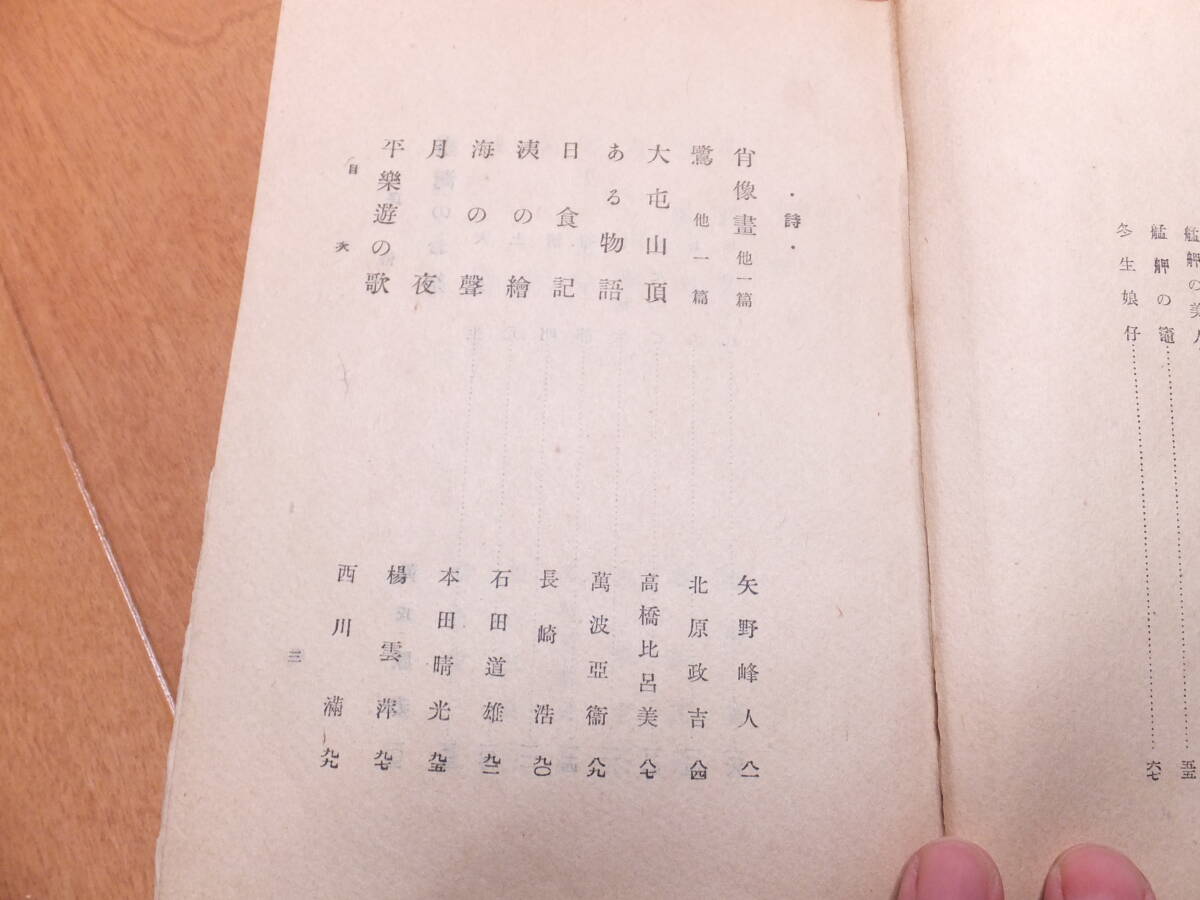 艋舺の美人
艋舺の竈 五五
冬生娘仔 六七
・詩・
肖像畫 他一篇 矢野峰人 八一
鷺 他一篇 北原政吉 八四
大屯山頂 高橋比呂美 八七
ある物語 萬波亞衞 八九
日食記 長崎浩 九〇
洟の繪 石田道雄 九二
海の聲 本田晴光 九五
月夜 楊雲萍 九七
平樂遊の歌 西川滿 九九
目次 三